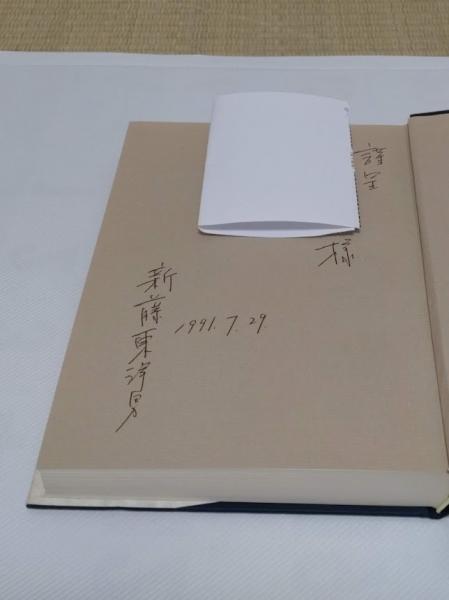 謹呈
様
1991.7.29
新藤東洋男